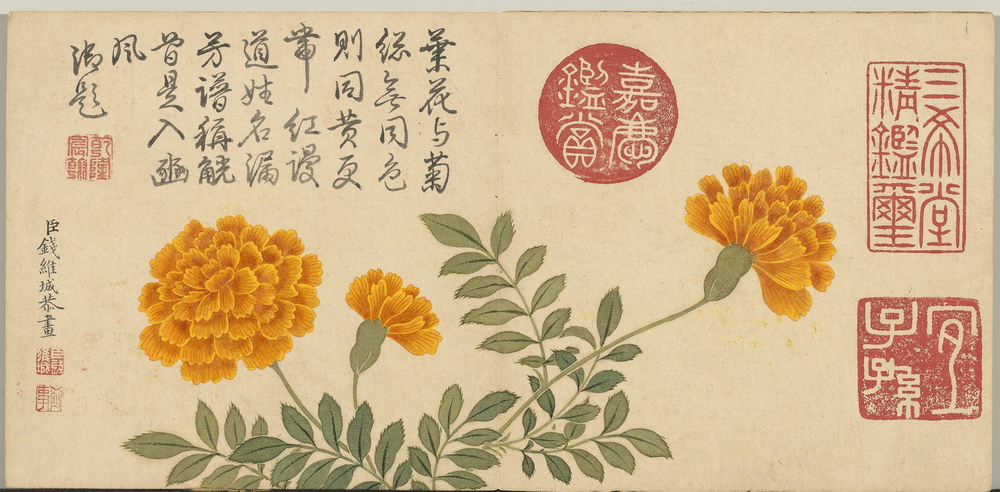 三希堂
精鑑璽
宜
子孫
嘉慶
鑑賞
葉花与菊
総無同色
則同黄更
帶紅謾
道姓名漏
芳譜稱觥
曾是入豳
風
御題
乾隆
宸翰
臣錢維城恭畫